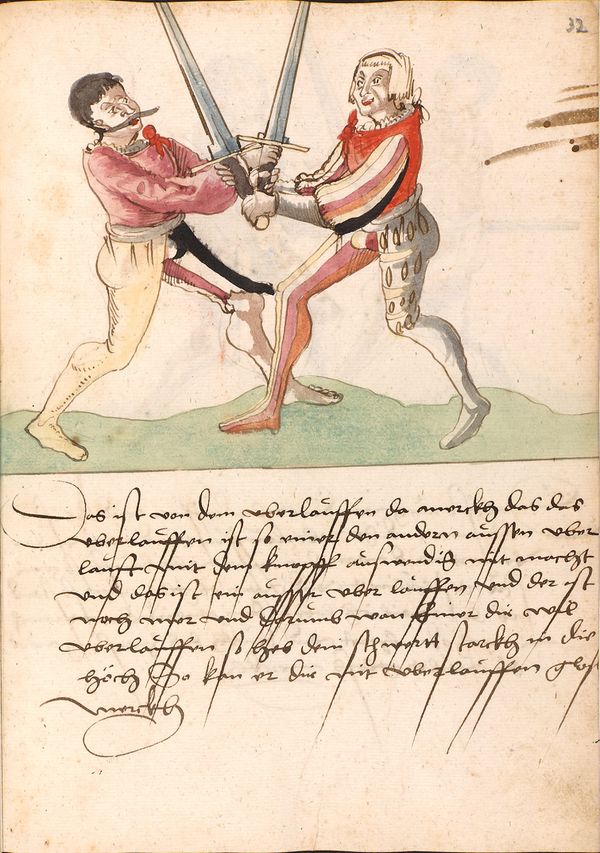 32
Das ist von dem vberlauffen da merckh das das
vberlauffen ist so einer den andern aussen vber
laufft mit dem knopff auswendig mit macht
und das ist ein ausser vber lauffen und der ist
noch mer und darumb wan einer dir wil
vberlauffen so heb dein schwertt starckh in die
höch So kan er dir nit vberlauffen glos
merckh